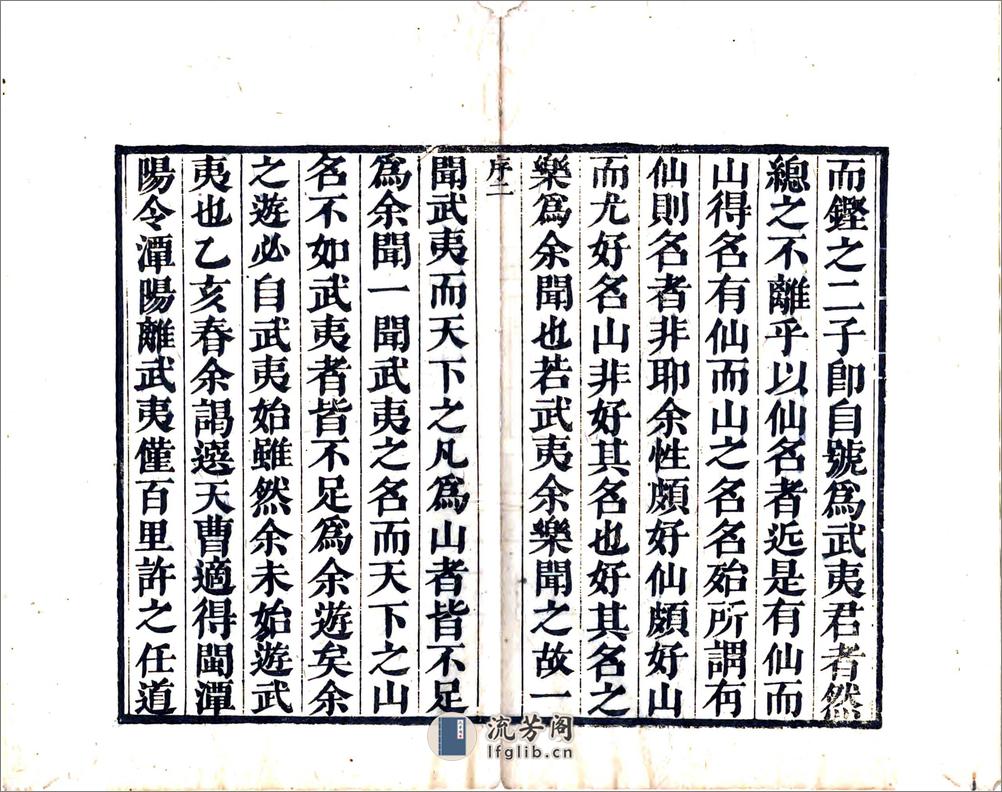 而鏗之二子卽自號爲武夷君者然
總之不離乎以仙名者近是有仙而
山得名有仙而山之名名殆所謂有
仙則名者非耶余性頗好仙頗好山
而尤好名山非好其名也好其名之
樂爲余聞也若武夷余樂聞之故一
序二
聞武夷而天下之凡爲山者皆不足
爲余聞一聞武夷之名而天下之山
名不如武夷者皆不足爲余遊矣余
之遊必自武夷始雖然余未始遊武
夷也乙亥春余謁選天曹適得閩潭
陽令潭陽離武夷僅百里許之任道
流芳阁
lfglib.cn